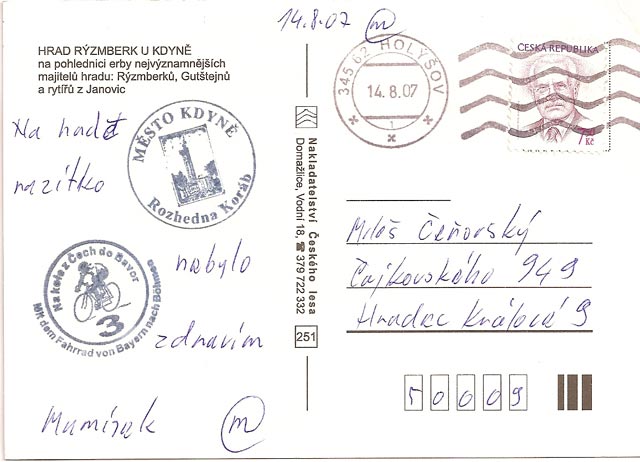 14.8.07 m
HRAD RÝZMBERK U KDYNĚ
na pohlednici erby nejvýznamnějších
majitelů hradu: Rýzmberků, Gutštejnů
a rytířů z Janovic
345 62 HOLÝŠOV
14.8.07
1
ČESKÁ REPUBLIKA
7,50 Kč
Na hadět
MĚSTO KDYNĚ
Rozhledna Koráb
razítko
nebylo
Na kole z Čech do Bavor
3
Mit dem Fahrrad von Bayern nach Böhmen
zdravím
m
Nakladatelství Českého lesa
Domažlice, Vodní 18, ☎ 379 722 332
251
Miloš Čeňovský
Čajkovského 949
Hradec Králové 9
50009